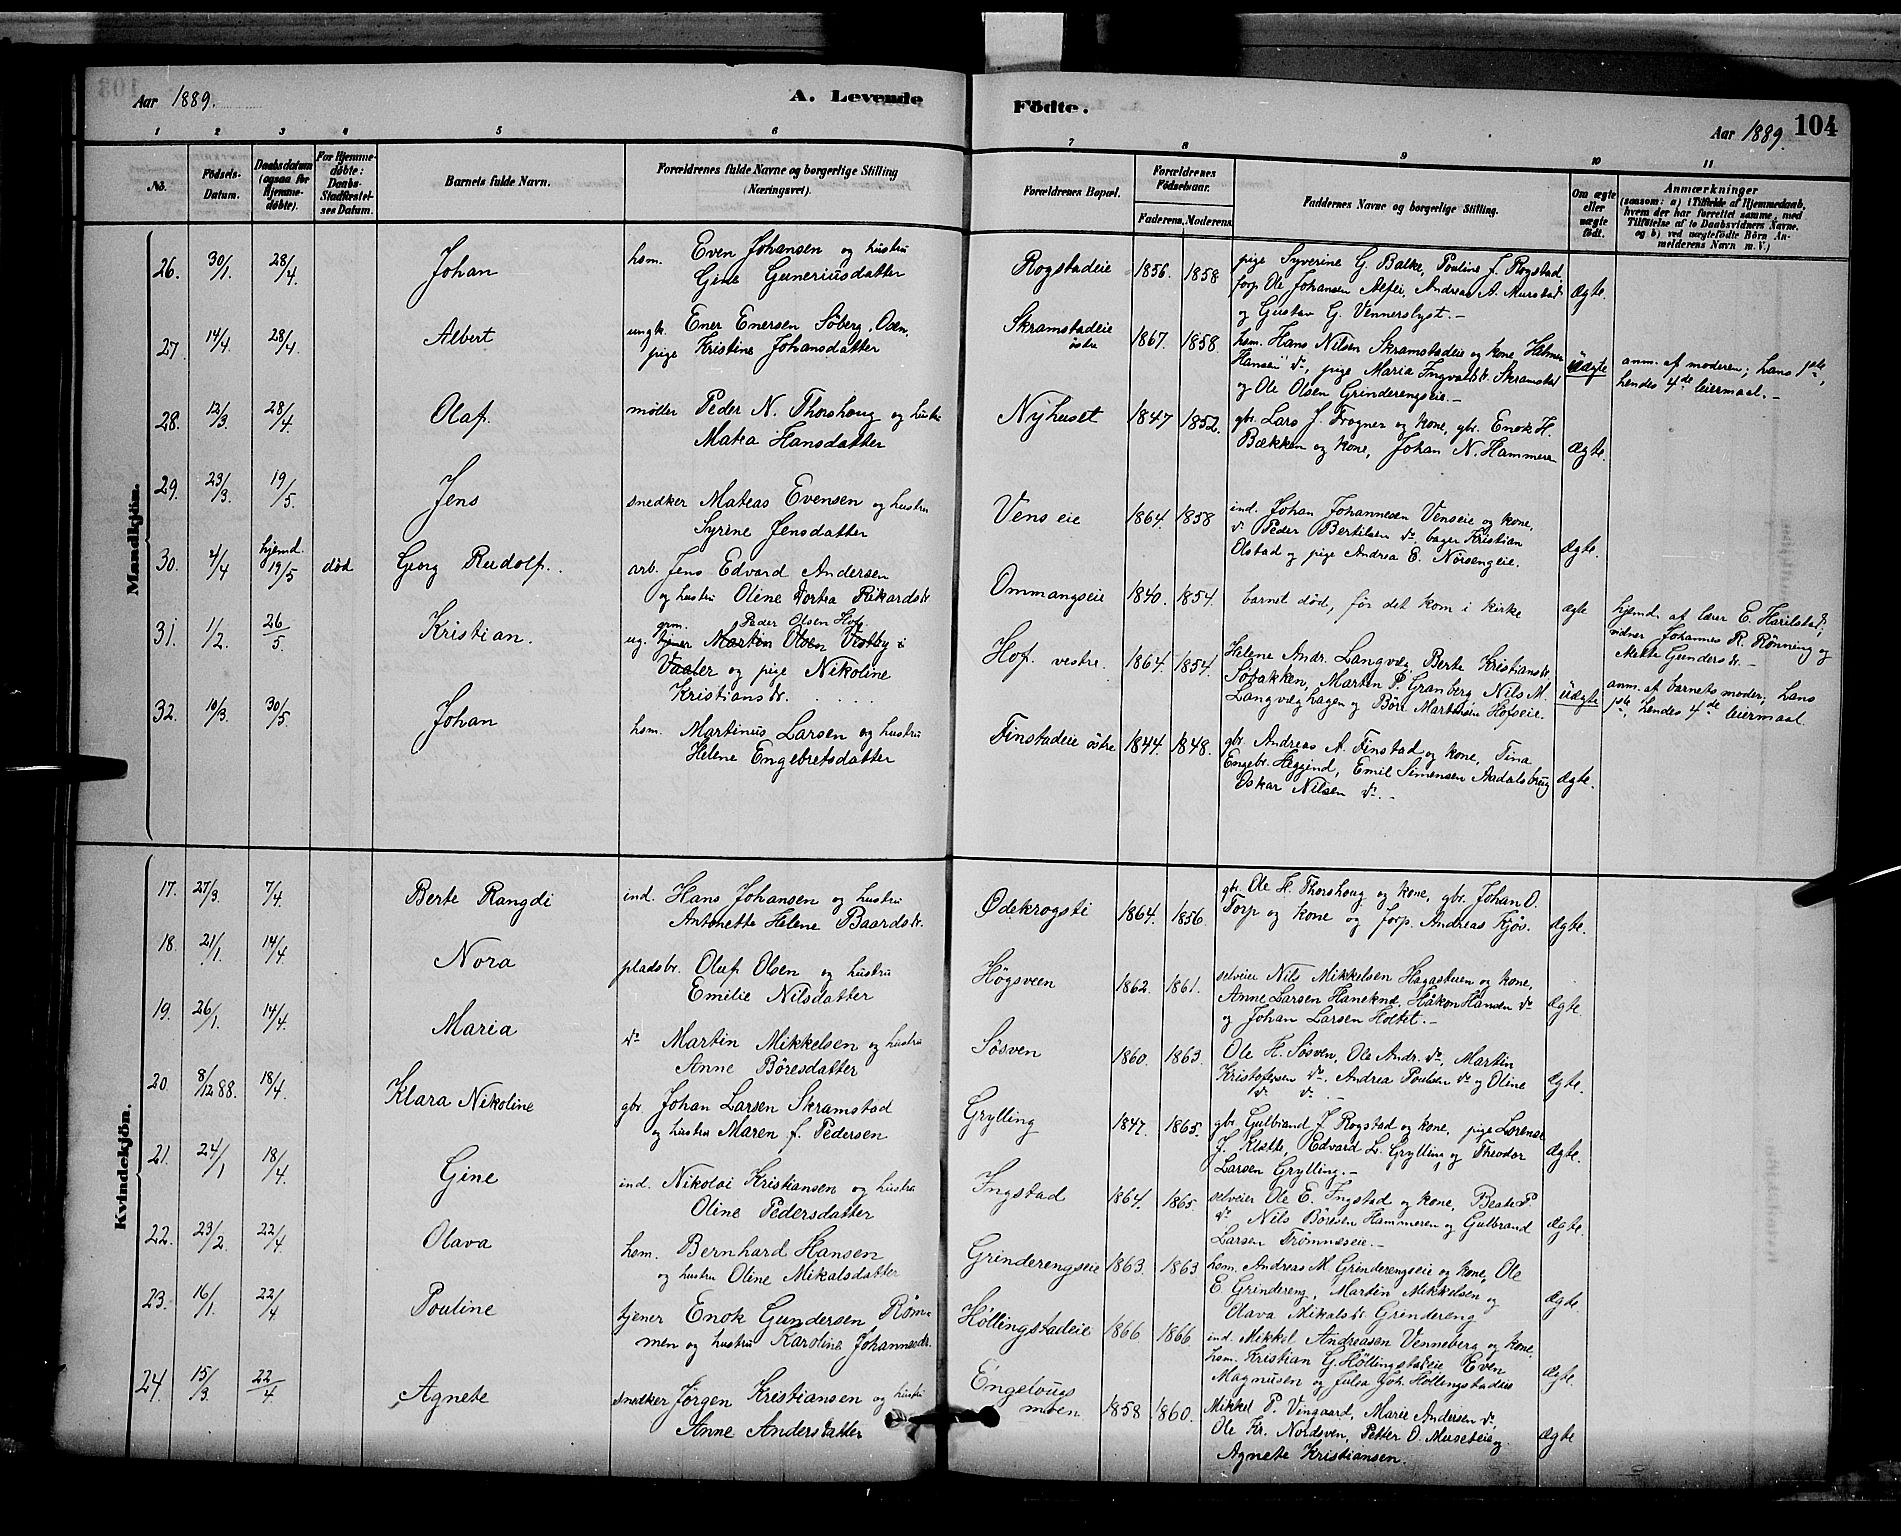 Aar 1889.
A. Levende
1 2 3 4 5 6
No.
Födsels-
Datum.
Daabsdatum
(ogsaa for
Hjemme-
døbte).
For Hjemme-
døbte:
Daabs-
Stadfæstel-
ses Datum.
Barnets fulde Navn.
Forældrenes fulde Navne og borgerlige Stilling
(Næringsvei).
Mandkjön.
26. 30/1. 28/4. Johan hsm. Even Johansen og hustru
Gine Guneriusdatter
27. 14/4. 28/4. Albert ungk. Ener Enersen Söberg, Oen,
pige Kristine Johansdatter
28. 12/3. 28/4. Olaf. møller Peder N. Thorshoug og hustru
Matea Hansdatter
29. 23/3. 19/5 Jens snedker Mateas Evensen og hustru
Syrene Jensdatter
30. 2/4 hjemd. 19/5 död Georg Rudolf. arb. Jens Edvard Andersen
og hustru Oline Dortea Rikardsdr.
31. 1/2. 26/5. Kristian. grm. Peder Olsen Hof,
ug. tjener Martin Olsen Visthy i
Vaaler og pige Nikoline
Kristiansdr.
32. 10/3. 30/5 Johan hsm. Martinus Larsen og hustru
Helene Engebretsdatter
Kvindekjön.
17. 27/3. 7/4 Berte Rangdi ind. Hans Johansen og hustru
Antonette Helene Baardsdr.
18. 21/1. 14/4 Nora pladsbr. Oluf Olsen og hustru
Emilie Nilsdatter
19. 26/1. 14/4. Maria do Martin Mikkelsen og hustru
Anne Böresdatter
20 8/12 88. 18/4. Klara Nikoline gbr. Johan Larsen Skramstad
og hustru Maren f. Pedersen
21. 24/1 18/4. Gine ind. Nikolai Kristiansen og hustru
Oline Pedersdatter
22. 23/2. 22/4. Olava hsm. Bernhard Hansen
og hustru Oline Mikalsdatter
23. 16/1. 22/4 Pouline tjener Enok Gundersen Røm-
men og hustru Karoline Johannesdr.
24. 15/3 22/4. Agnete snedker Jørgen Kristiansen og hustru
Anne Andersdatter
Födte.
Aar 1889. 104
7 8 9 10 11
Forældrenes Bopæl.
Forældrenes
Födselsaar.
Faderens. Moderens.
Faddernes Navne og borgerlige Stilling.
Om ægte
eller
uægte
födt.
Anmærkninger
(saasom: a) i Tilfælde af Hjemmedaab,
hvem der har forrettet samme, med
Tilföielse af to Daabsvidners Navne.
og b) ved uægtefödte Börn An-
melderens Navn m. V.)
Rogstadeie 1856. 1858 pige Syverine G. Balke, Pouline J. Rogstad,
forp. Ole Johansen Alfei, Andreas A. Murstad ægte.
og Gustav G. Vennerslyst.
Skramstadeie
östre 1867. 1858. hsm. Hans Nilsen Skramstadeie og kone, Halmer
Hansen do, pige Maria Ingvaldsdr. Skramstad uægte
og Ole Olsen Grinderengseie.
anm. af moderen; hans 1ste,
hendes 4de leiermaal.
Nyhuset 1847 1852. gbr. Lars J. Frogner og kone, gbr. Enok H.
Bækken og kone, Johan N. Hammeren ægte.
Venseie 1864. 1858 ind. Johan Johannesen Venseie og kone,
do Peder Bertilsen do, bager Kristian
Olstad og pige Andrea E. Norsengeie. ægte.
Ommangseie 1840. 1854. barnet död, før det kom i kirke ægte
hjemd. af lærer E. Harildstad;
vidner Johannes R. Rönning og
Mette Gundersdr.
Hof vestre. 1864. 1854. Helene Andr. Langvæg, Berte Kristiansdr.
Sobakken, Martin P. Granberg, Nils M. uægte
Langvæghagen og Böre Martinsen Hofseie.
anm. af barnets moder; hans
1ste, hendes 4de leiermaal
Finstadeie östre 1844. 1848. gbr. Andreas A. Finstad og kone, Tina
Engebr. Heggind, Emil Simensen Aadalsbrug ægte.
Oskar Nilsen do.
Ödekrogsti 1864. 1856. gbr. Ole H. Thorshoug og kone, gbr. Johan O.
Torp og kone og forp. Andreas Kjös. ægte.
Høgsveen 1862. 1861. selveier Nils Mikkelsen Hagastuen og kone,
Anne Larsen Hanekne, Håkon Hansen do ægte.
og Johan Larsen Holtet.
Søsven 1860. 1863. Ole H. Søsven, Ole Andr. do, Martin
Kristofersen do, Andrea Poulsen do og Oline ægte.
do do.
Grylling 1847. 1865. gbr. Gulbrand J. Rogstad og kone, pige Lorense
J. Klætte, Edvard L. Grylling og Theodor ægte.
Larsen Grylling.
Ingstad 1864. 1865. selveier Ole E. Ingstad og kone, Beate P.
do Nils Böresen Hammeren og Gulbrand ægte.
Larsen Trömnæseie.
Grinderengseie 1863. 1863 hsm. Andreas M. Grinderengseie og kone, Ole
E. Grindereng, Martin Mikkelsen og ægte
Olava Mikalsdr. Grindereng
Höllingstadeie 1866 1866 ind. Mikkel Andreasen Venneberg og kone,
hsm. Kristian G. Höllingstadeie Even ægte.
Magnusen og Julea Joh. Höllingstadeie
Engelougs
moen 1858 1860. Mikkel P. Vingaard, Marie Andersen do.
Ole Kr. Nordsven, Petter O. Museteie og ægte
Agnete Kristiansen.